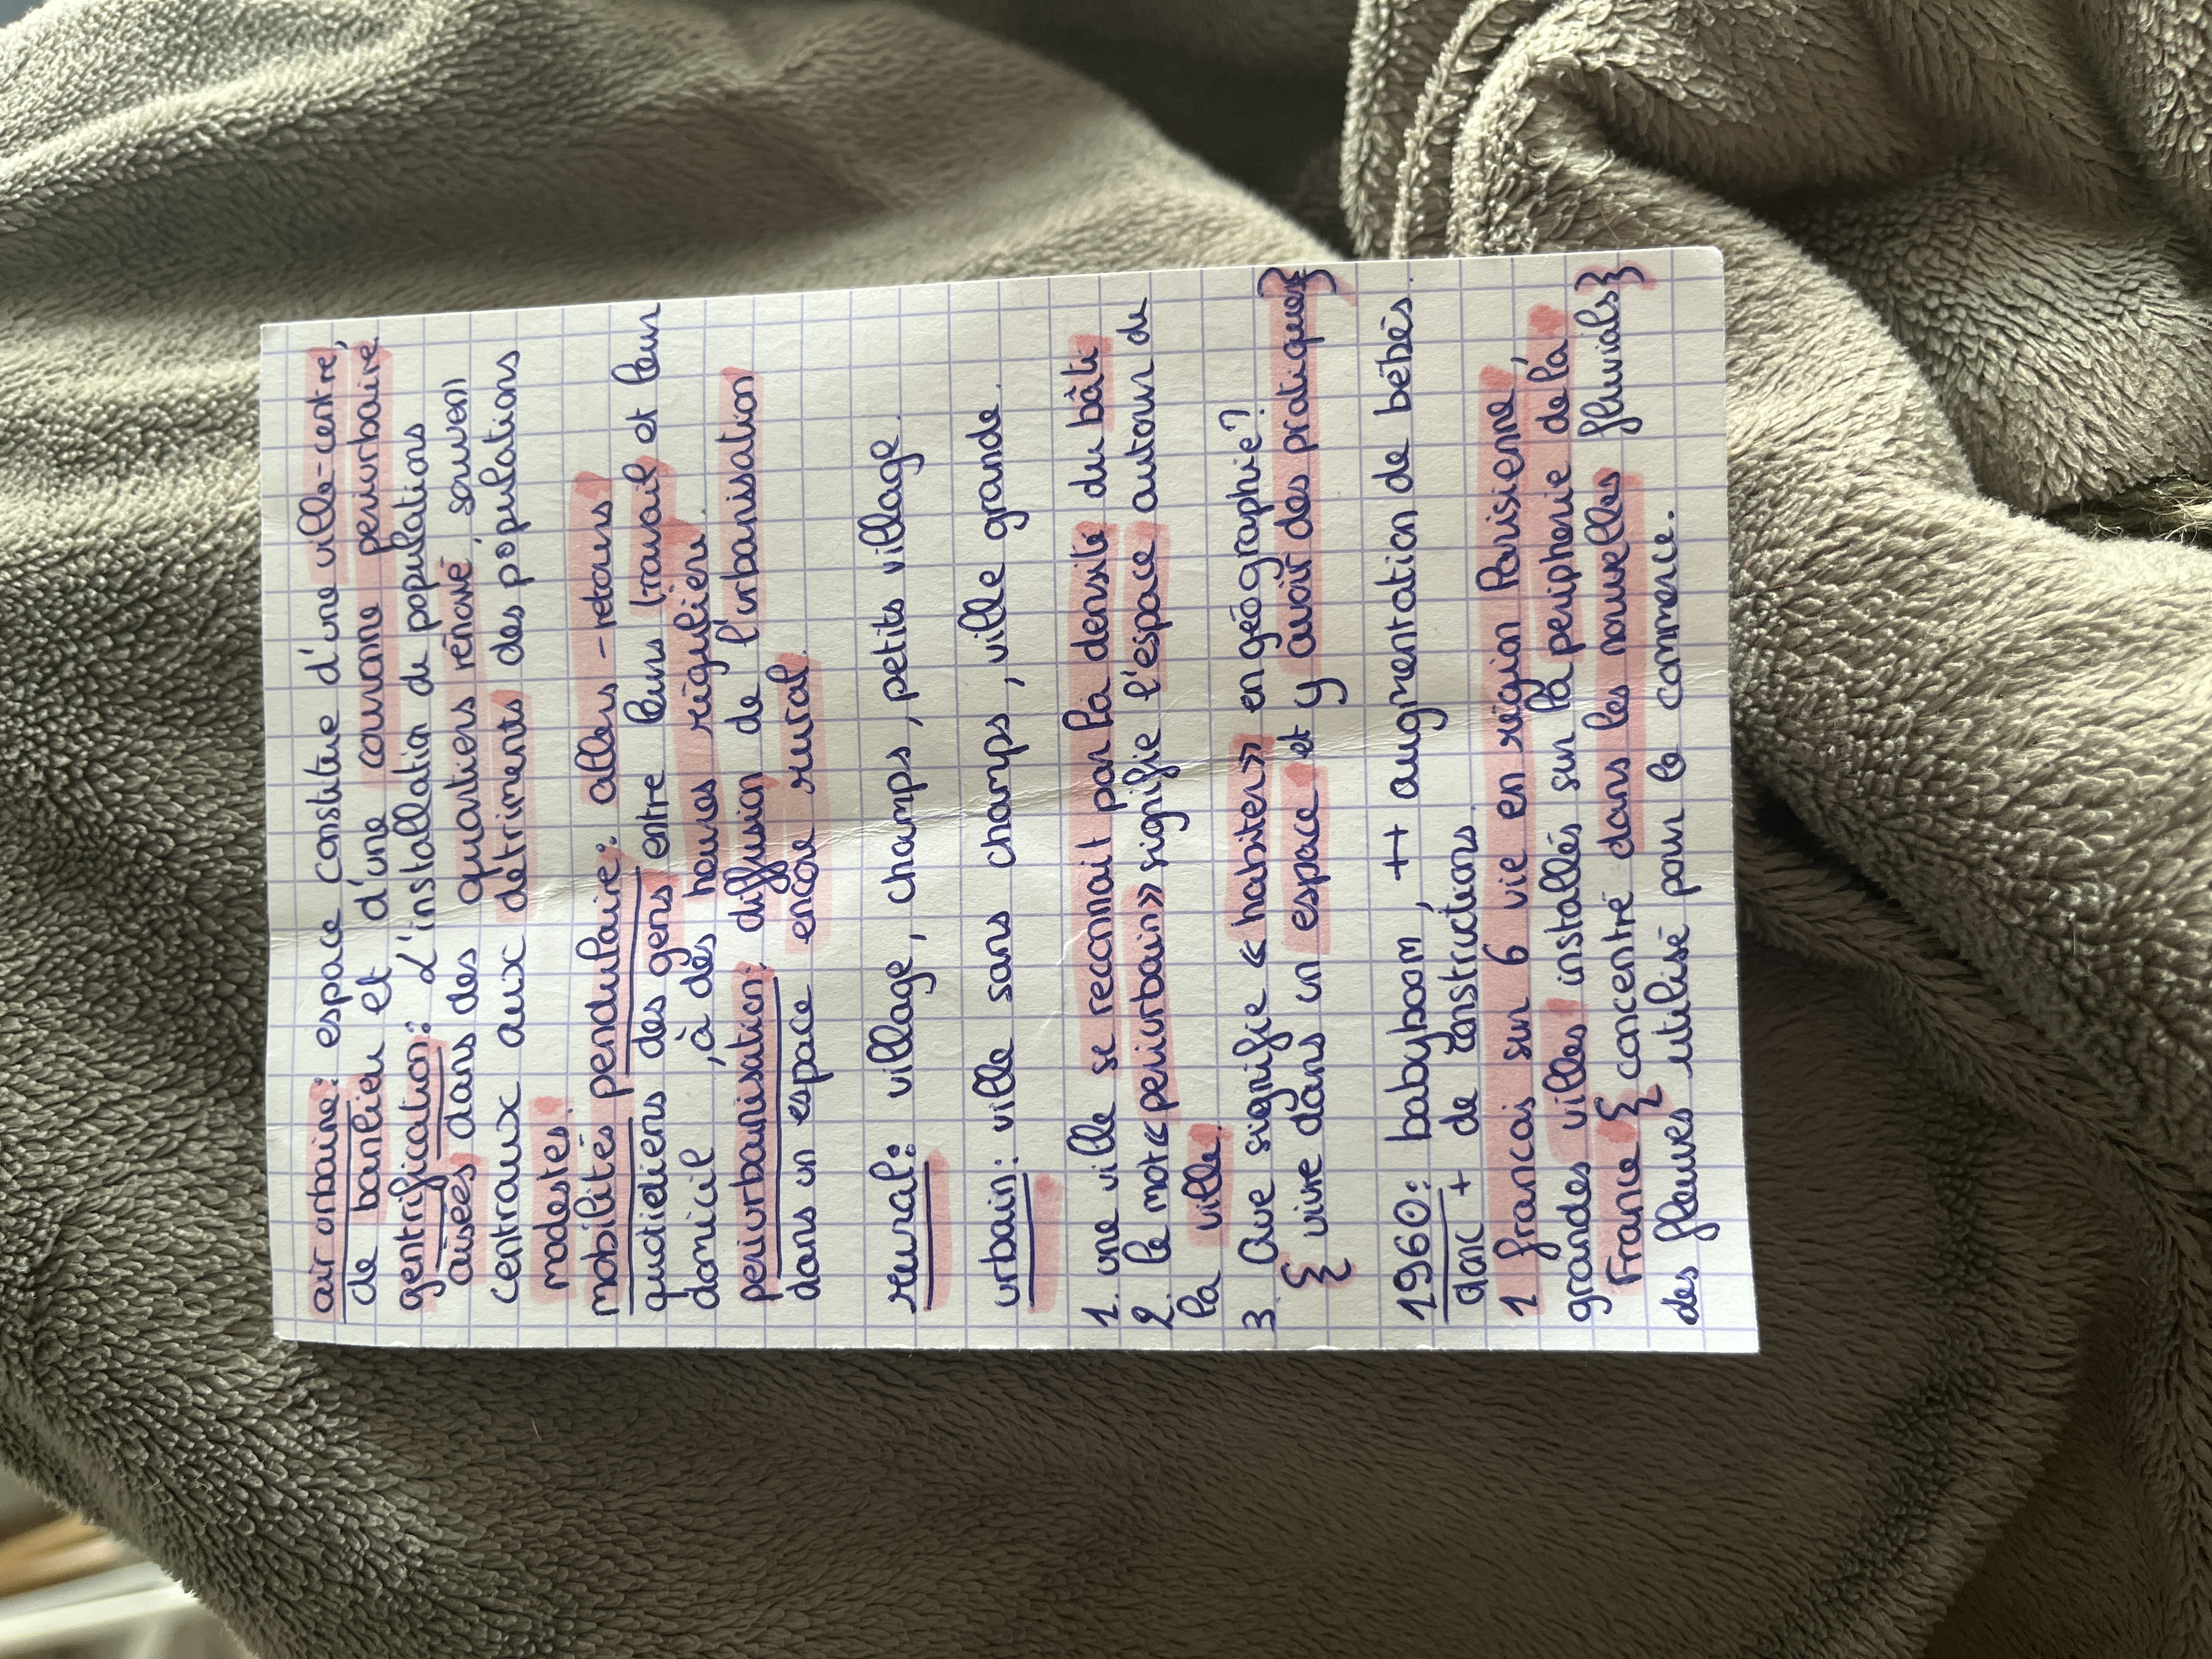 air urbaine: espace constitue d'une ville-centre,
de banlieu et d'une couronne periurbaine
gentrification: L'installation de populations
aisées dans des quartiers rénové, souven
centraux aux détriments des populations
modestes.
mobilités pendulaire: allers-retours
quotidiens des gens entre leurs travail et leur
domicil, à des heures régulière.
periurbanisation: diffusion de l'urbanisation
dans un espace encore rural.
rural: village, champs, petits village.
urbain: ville sans champs, ville grande.
1. une ville se reconnait par la densité du bâti
2. le mot « periurbain » signifie l'espace autour de
la ville.
3. Que signifie « habiter » en géographie?
{ vivre dans un espace et y avoir des pratiques}
1960: babyboom, ++ augmentation de bébés.
donc + de constructions.
1 francais sur 6 vie en région Parisienne,
grandes villes installés sur la peripherie de la
France { concentré dans les nouvelles fluvials}
des fleuves utilisé pour le commerce.